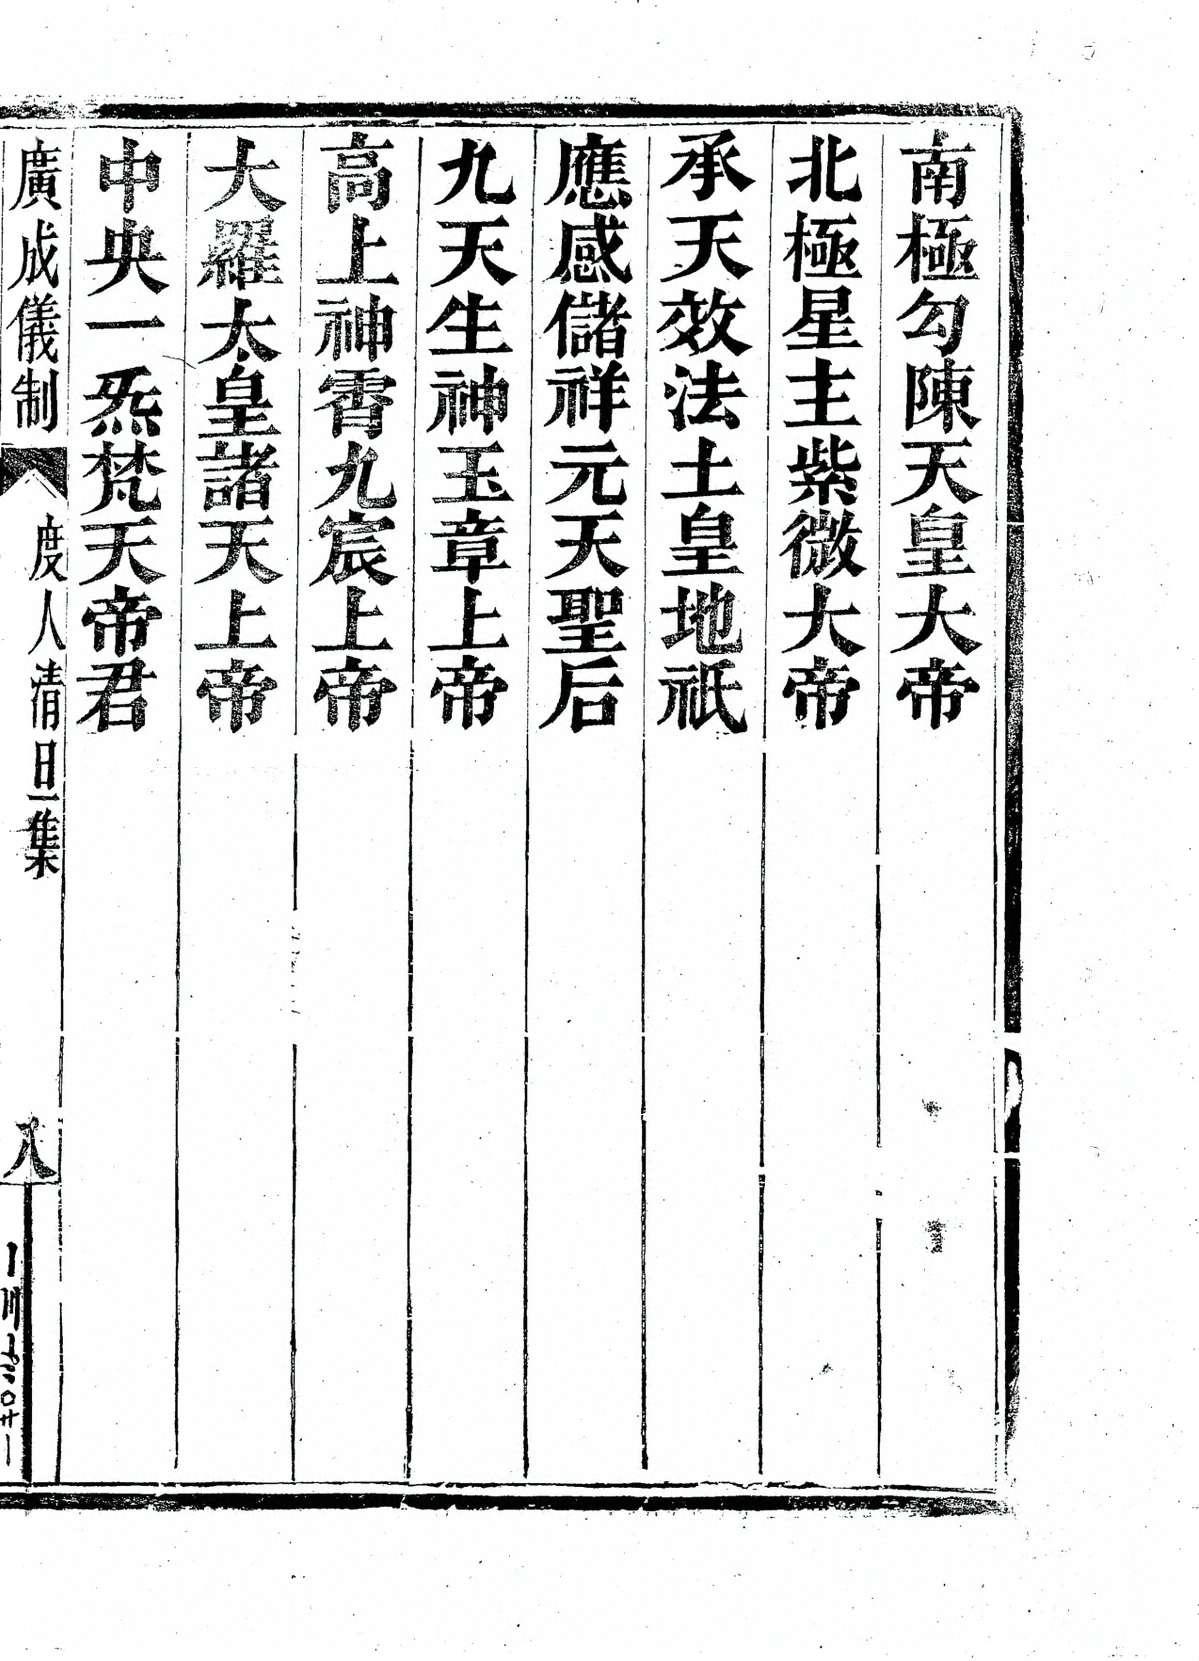 南極勾陳天皇大帝
北極星主紫微大帝
承天效法土皇地祇
應感儲祥元天聖后
九天生神玉章上帝
高上神霄九宸上帝
大羅太皇諸天上帝
中央一炁梵天帝君
廣成儀制 度人清旦集 八